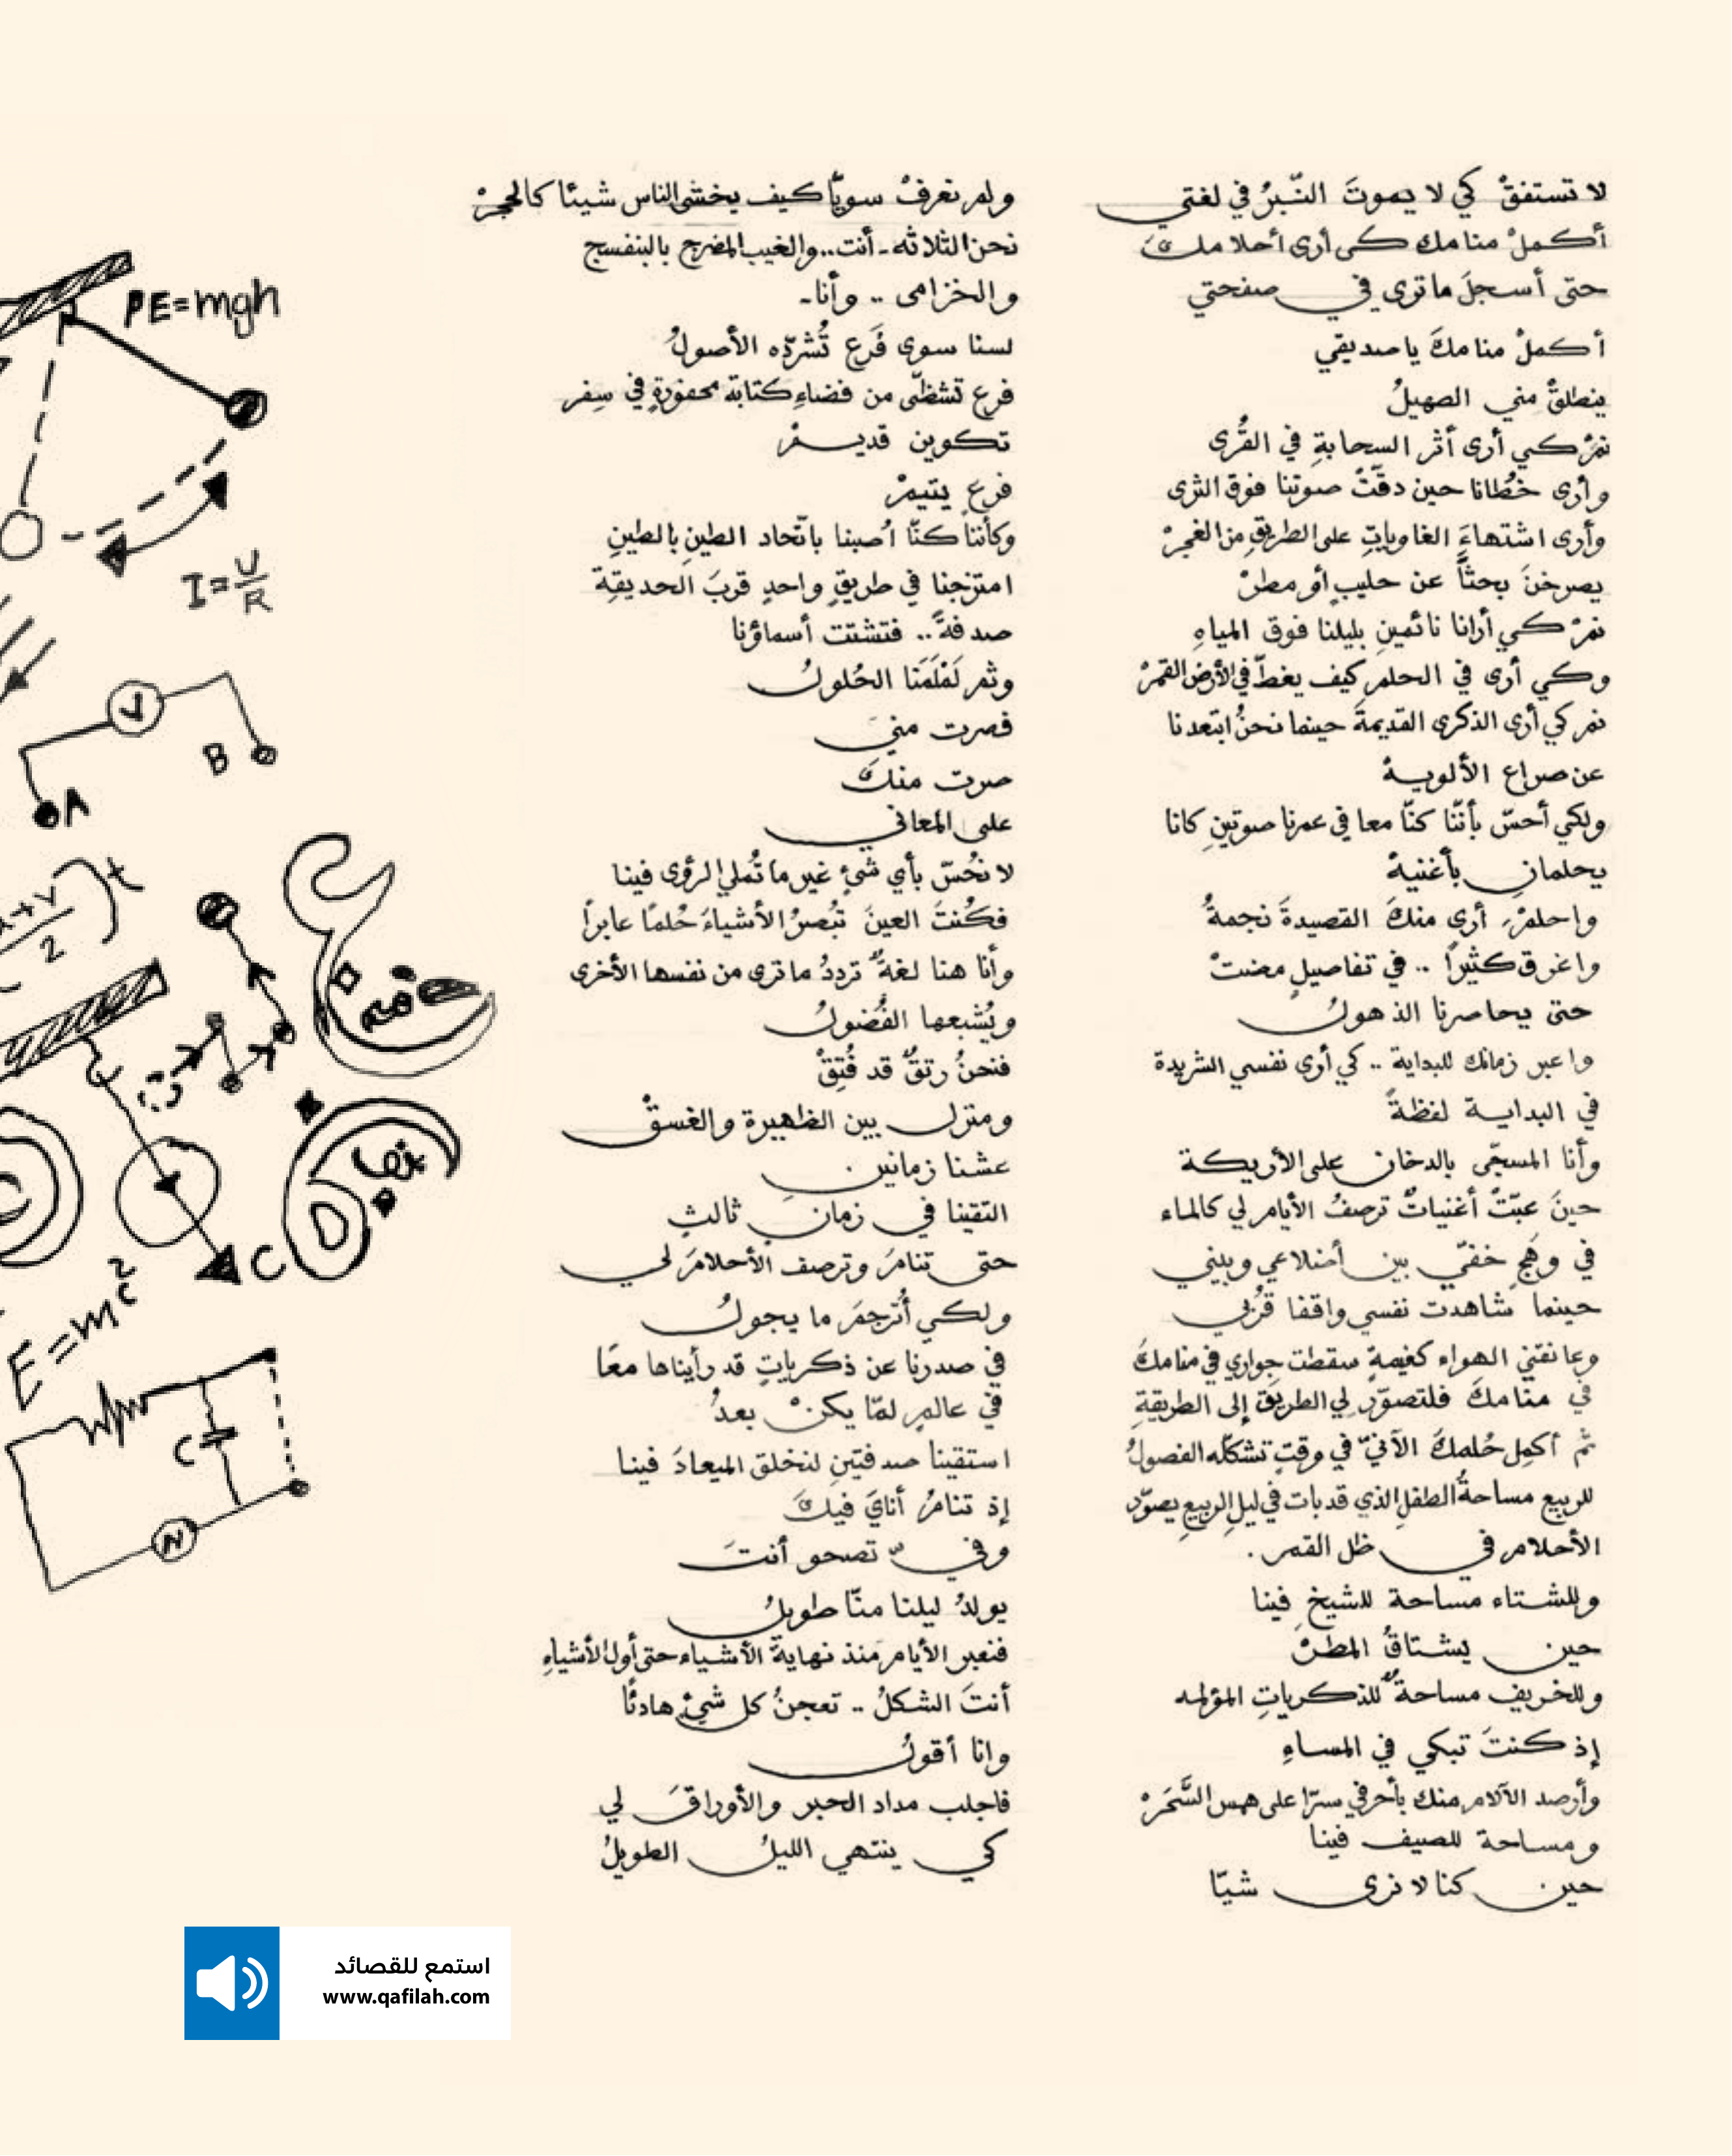 لا تستفقْ كي لا يموتَ النّبرُ في لغتي
أكملْ منامك كى أرى أحلامكَ
حتى أسجلَ ما ترى في صفحتي
أكملْ منامكَ يا صديقي
ينطلقْ مني الصهيلُ
نمْ كي أرى أثر السحابةِ في القُرى
وأرى خطانا حين دقّتْ صوتنا فوق الثرى
وأرى اشتهاءَ الغاوياتِ على الطريقِ من الغجرْ
يصرخنَ بحثاً عن حليبٍ أو مطرْ
نمْ كي أرانا نائمينِ بليلنا فوق المياهِ
وكي أرى في الحلم كيف يغطّ في الأرض القمرْ
نم كي أرى الذكرى القديمةَ حينما نحنُ ابتعدنا
عن صراع الألويهْ
ولكي أحسّ بأننّا كنّا معا في عمرنا صوتينِ كانا
يحلمانِ بأغنيهْ
واحلمْ، أرى منكَ القصيدةَ نجمةُ
واغرق كثيراً .. في تفاصيلٍ مضتْ
حتى يحاصرنا الذهولُ
واعبر زمانك للبداية .. كي أرى نفسي الشريدة
في البداية لفظةً
وأنا المسجّى بالدخان على الأريكة
حينَ عبّتْ أغنياتٌ ترصفُ الأيام لي كالماء
في وهَجٍ خفيّ بين أضلاعي وبيني
حينما شاهدت نفسي واقفا قُربي
وعانقني الهواء كغيمةٍ سقطت جواري في منامكَ
في منامكَ فلتصوّر لي الطريقَ إلى الطريقةِ
ثم أكمل حُلمكَ الآنيّ في وقتٍ تشكلّه الفصولُ
للربيع مساحةُ الطفلِ الذي قد بات في ليلِ الربيعِ يصوّر
الأحلام في ظل القمر .
وللشتاء مساحة للشيخِ فينا
حين يشتاقُ المطرْ
وللخريف مساحةٌ للذكرياتِ المؤلمه
إذ كنتَ تبكي في المساءِ
وأرصد الآلام منك بأحرفي سرّا على همس السَّمَرْ
ومساحة للصيف فينا
حين كنا لا نرى شيئا
ولم نعرفْ سويّا كيف يخشى الناس شيئا كالحجرْ
نحن الثلاثه - أنت .. والغيب المضرج بالبنفسج
والخزامى .. وأنا -
لسنا سوى فَرع تُشرّده الأصولُ
فرع تشظّى من فضاءِ كتابة محفورةٍ في سِفر
تكوين قديمْ
فرع يتيمْ
وكأننا كنّا اُصبنا باتّحاد الطينِ بالطينِ
امتزجنا في طريقٍ واحدٍ قربَ الحديقةِ
صدفةً .. فتشتت أسماؤنا
وثم لَمْلَمَنا الحُلولُ
فصرت منيَ
صرت منكَ
على المعاني
لا نحُسّ بأي شئٍ غير ما تُملي الرؤى فينا
فكُنتَ العينَ تبُصرُ الأشياءَ حُلمًا عابراً
وأنا هنا لغةٌ ترددُ ما ترى من نفسها الأخرى
ويُشبعها الفُضولُ
فنحنُ رتقٌ قد فُتِقْ
ومنزل بين الظهيرة والغسقْ
عشنا زمانينِ .
التقينا في زمانٍ ثالثٍ
حتى تنامَ وترصف الأحلامَ لي
ولكي أُترجمَ ما يجولُ
في صدرنا عن ذكرياتٍ قد رأيناها معًا
في عالمٍ لمّا يكنْ بعدُ
استقينا صدفتينِ لنخلق الميعادَ فينا
إذ تنامُ أنايَ فيكَ
وفيّ تصحو أنتَ
يولدُ ليلنا منّا طويلُ
فنعبر الأيام منذ نهايةَ الأشياء حتى أول الأشياءِ
أنتَ الشكلُ .. تعجنُ كل شئٍ هادئًا
وانا أقولُ
فاجلب مداد الحبر والأوراقَ لي
كي ينتهي الليلُ الطويلُ
PE=mgh
I=U/R
V
B
A
v
2
t
C
E=mc²
C
N
استمع للقصائد
www.qafilah.com